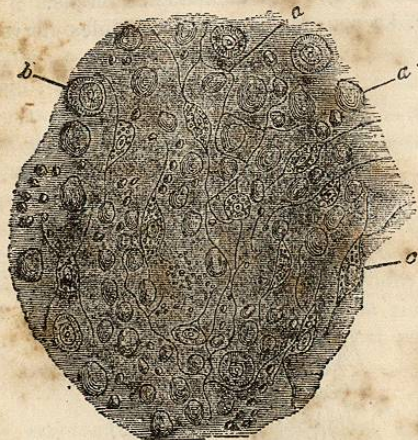 a
b
a
c